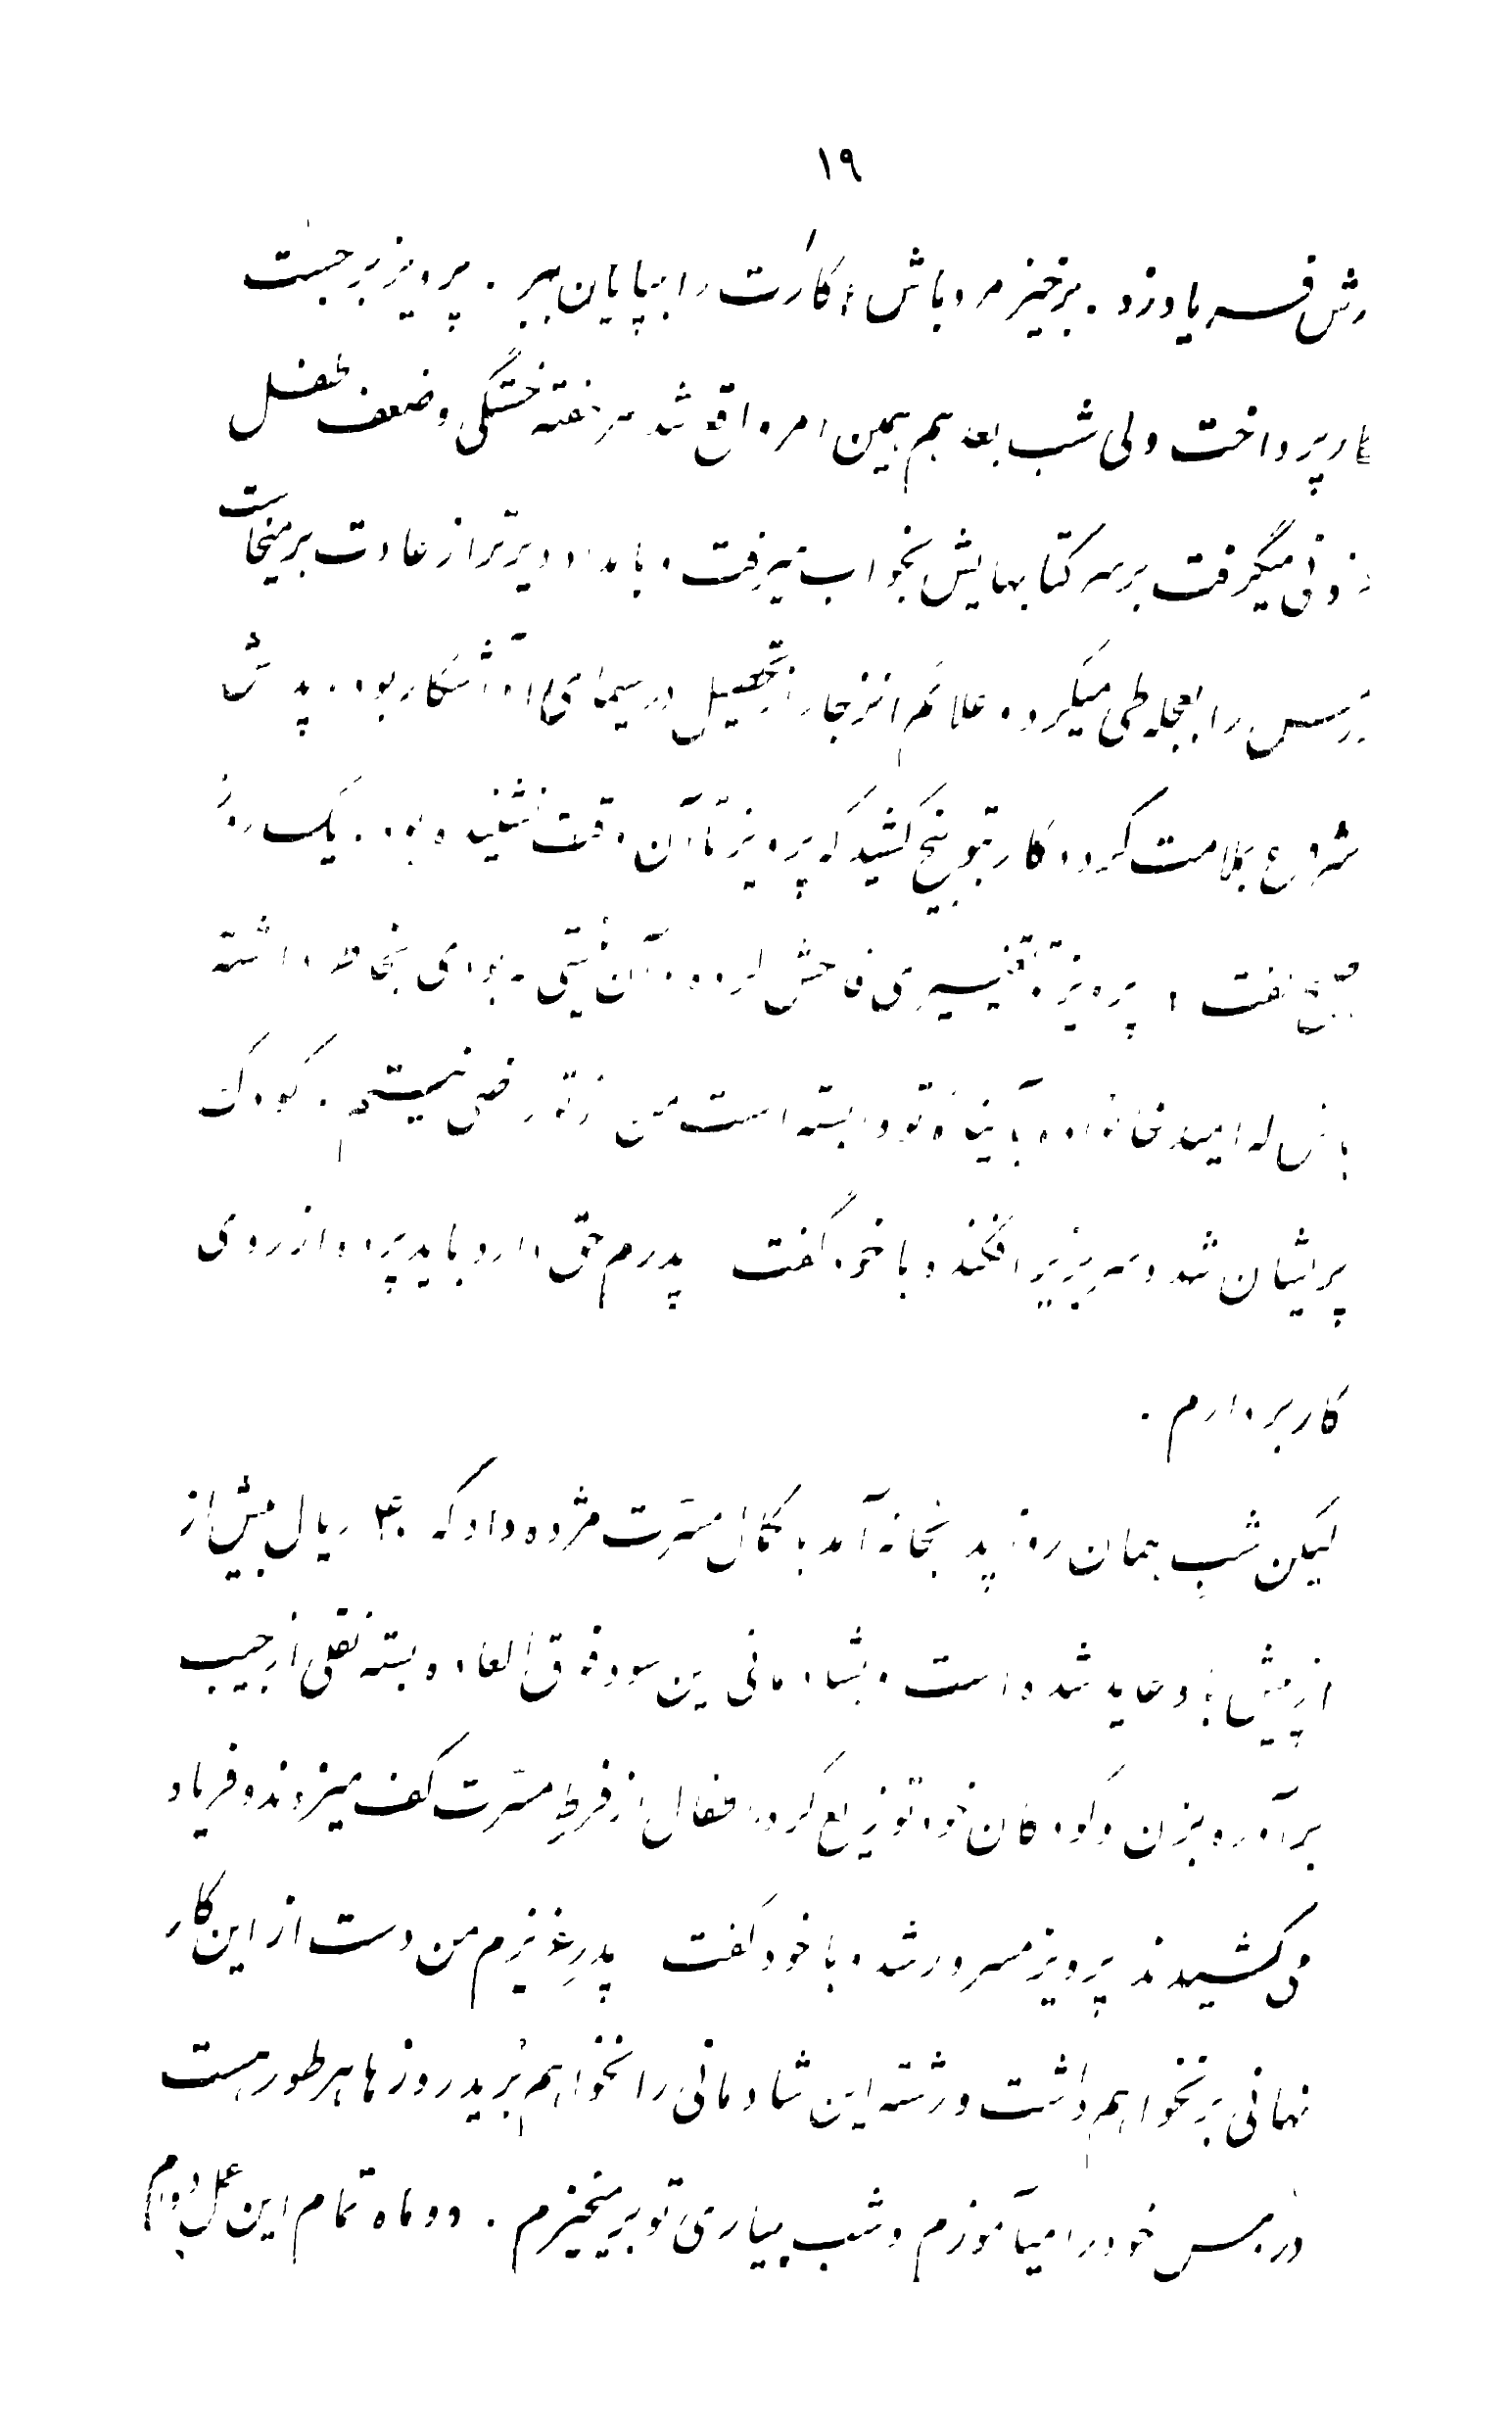 ۱۹
رش فریاد زد . برخیز مرد باش ، کارت را بپایان ببر . پرویز برجست
کار پرداخت ولی شب بعد هم همین امر واقع شد هفته خستگی و ضعف طفل
فزونی میگرفت بر سر کتابهایش بخواب میرفت و بامداد دیرتر از عادت برمیخاست
را بعجله طی میکرد ، علائم انزجار از تحصیل در سیمای او آشکار بود . پدرش
شروع بملامت کرد و کار بتوبیخ کشید که پرویز تا آن وقت نشنیده بود . یک روز
صبح گفت ، پرویز تو تغییری فاحش کرده آن نیستی که بودی بخاطر داشته
باش که امید خانواده بآینده تو وابسته است من از تو راضی نیستم . کودک
پریشان شد و سر بزیر افکند و با خود گفت پدرم حق دارد باید پرده از روی
کار بردارم .
لیکن شب همان روز پدر بخانه آمد با کمال مسرّت مژده داد که ۴۰ ریال بیش از
از پیش عاید شده است و بشادمانی این سود فوق العاده بسته نقلی از جیب
برآورد و بزن و کودکان خود توزیع کرد . اطفال از فرط مسرّت کف میزدند و فریاد
می کشیدند پرویز مسرور شد و با خود گفت پدرِ عزیزم من دست از این کار
نهانی برنخواهم داشت و رشته این شادمانی را نخواهم بُرید روزها هر طور هست
درس خود را میآموزم و شب بیاریِ تو برمیخیزم . دو ماه تمام این عمل دوام